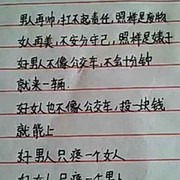 男人再帅，扛不起责任，照样是废物
女人再美，不安分守己，照样是婊子
好男人不像公交车，不会十分钟
就来一辆
好女也不像公交车，投一块钱
就能上
好男人只疼一个女人
好女人只